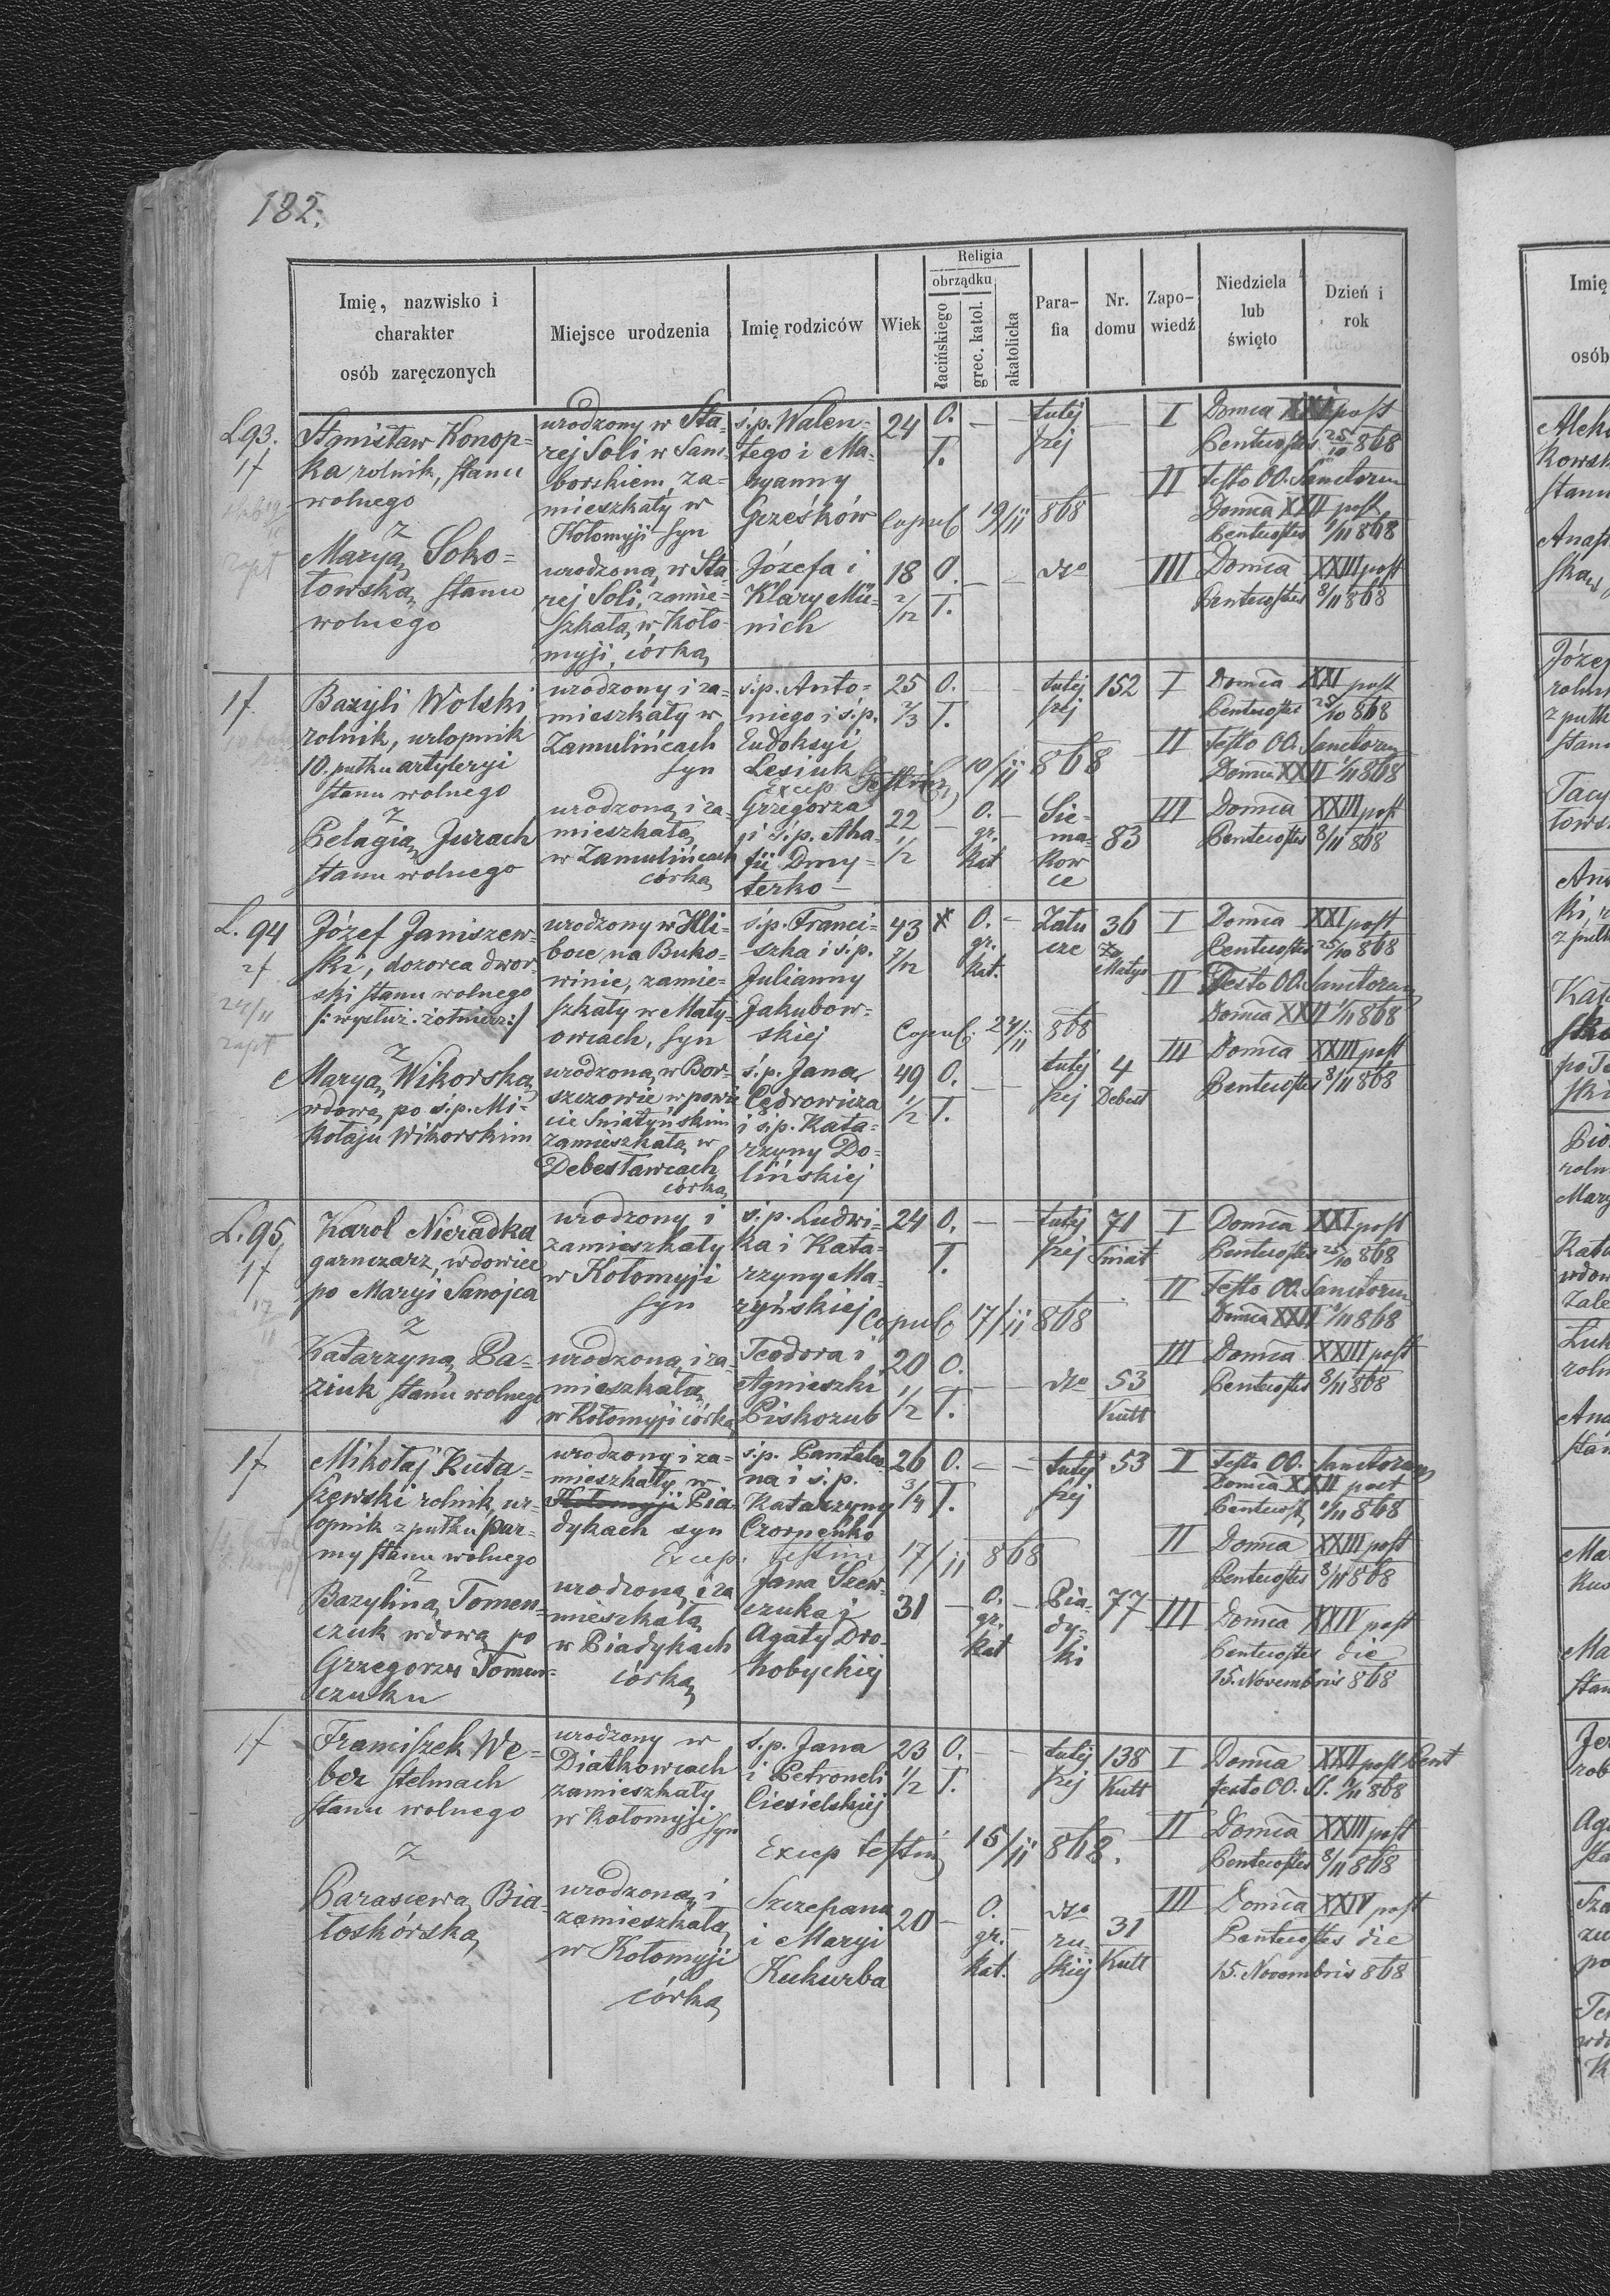 182.
Imię, nazwisko i charakter osób zaręczonych
Miejsce urodzenia
Imię rodziców
Wiek
Religia
obrządku
łacińskiego
grec. katol.
akatolicka
Para-
fia
Nr.
domu
Zapo-
wiedź
Niedziela
lub
święto
Dzień i
rok
L93.
1f
Stanisław Konop-
ka rolnik, stanu
wolnego
z
Maryą Soko-
łowską stanu
wolnego
urodzony w Sta-
rej Soli w Sam-
borskiem, za-
mieszkały w
Kołomyji syn
urodzoną w Sta-
rej Soli, zamie-
szkałą w Koło-
myji, córką
ś.p. Walen-
tego i Ma-
ryanny
Grześków
Józefa i
Klary Mü-
nich
24
Copul. 19/11 868
18
2/12
O.
T.
O.
T.
tutej
szej
dto
I Domca XXI post
Pentecostes 25/10 868
II Festo OO. Sanctorum
Domca XXII post
Pentecostes 1/11 868
III Domca XXIII post
Pentecostes 8/11 868
1f
Bazyli Wolski
rolnik, urlopnik
10. pułku artyleryi
stanu wolnego
z
Pelagią Jurach
stanu wolnego
urodzony i za-
mieszkały w
Zamulińcach
syn
urodzoną i za-
mieszkałą
w Zamulińcach
córką
ś.p. Anto-
niego i ś.p.
Eudoksyi
Lesiuk
Excep Testim 10/11 868
Grzegorza
i ś.p. Aha-
fii Dmy-
terko
25
2/3
22
1/2
O.
T.
O.
gr.
kat
tutej
szej
Sie-
ma-
kow
ce
152
83
I Domca XXI post
Pentecostes 25/10 868
II Festo OO. Sanctorum
Domca XXII 1/11 868
III Domca XXIII post
Pentecostes 8/11 868
L. 94
2f
24/11
zapł
Józef Janiszew-
ski, dozorca dwor-
ski stanu wolnego
/: wysłuż. żołnierz :/
z
Maryą Wikorską
wdową po ś.p. Mi-
kołaju Wikorskim
urodzony w Hli-
boce na Buko-
winie, zamie-
szkały w Maty-
owcach, syn
urodzoną w Bor-
szczowie w powie
cie Śniatyńskim
zamieszkałą w
Debesławcach
córką
ś.p. Franci-
szka i ś.p.
Julianny
Jakubow-
skiej
Copul. 24/11 868
ś.p. Jana
Cędrowicza
i ś.p. Kata-
rzyny Do-
lińskiej
43
7/12
49
1/2
x
O.
gr.
kat.
O.
T.
Zału
cze
tutej
szej
36
Matyo
4
Debesł
I Domca XXI post
Pentecostes 25/10 868
II Festo OO. Sanctorum
Domca XXII 1/11 868
III Domca XXIII post
Pentecostes 8/11 868
L. 95
1f
17/11
Karol Nieradka
garnczarz, wdowiec
po Maryi Sanojca
z
Katarzyną Ba-
ziuk stanu wolnego
urodzony i
zamieszkały
w Kołomyji
syn
urodzoną i za-
mieszkałą
w Kołomyji córką
ś.p. Ludwi-
ka i Kata-
rzyny Ma-
zyńskiej
Copul. 17/11 868
Teodora i
Agnieszki
Piskozub
24
20
1/2
O.
T.
O.
T.
tutej
szej
dto
71
Śniat
53
Kutt
I Domca XXI post
Pentecostes 25/10 868
II Festo OO. Sanctorum
Domca XXII 1/11 868
III Domca XXIII post
Pentecostes 8/11 868
1f
Mikołaj Kuta-
szewski rolnik, ur-
lopnik z pułku Par-
my stanu wolnego
z
Bazyliną Tomen-
czuk wdową po
Grzegorzu Tomen-
czuku
urodzony i za-
mieszkały w
Kołomyji Pia-
dykach syn
urodzoną i za
mieszkałą
w Piadykach
córką
ś.p. Pantaleo
na i ś.p.
Katarzyny
Czornenko
Excep. testim 17/11 868
Jana Szew-
czuka i
Agaty Dro-
hobyckiej
26
3/4
31
O.
T.
O.
gr.
kat
tutej
szej
Pia-
dy-
ki
53
77
I Festo OO. Sanctorum
Domca XXII post
Pentecost. 1/11 868
II Domca XXIII post
Pentecostes 8/11 868
III Domca XXIV post
Pentecostes die
15. Novembris 868
1f
Franciszek We-
ber stelmach
stanu wolnego
z
Parascewą Bia-
łoskórską
urodzony w
Diatkowcach
zamieszkały
w Kołomyji
syn
urodzoną i
zamieszkałą
w Kołomyji
córką
ś.p. Jana
i Petroneli
Ciesielskiej
Excep testim 15/11 868.
Szczepana
i Maryi
Kukurba
23
1/2
20
O.
T.
O.
gr.
kat.
tutej
szej
dto
ru-
skiej
138
Kutt
31
Kutt
I Domca XXII post Pent
festo OO. SS. 1/11 868
II Domca XXIII post
Pentecostes 8/11 868
III Domca XXIV post
Pentecostes die
15. Novembris 868
Imię
osób